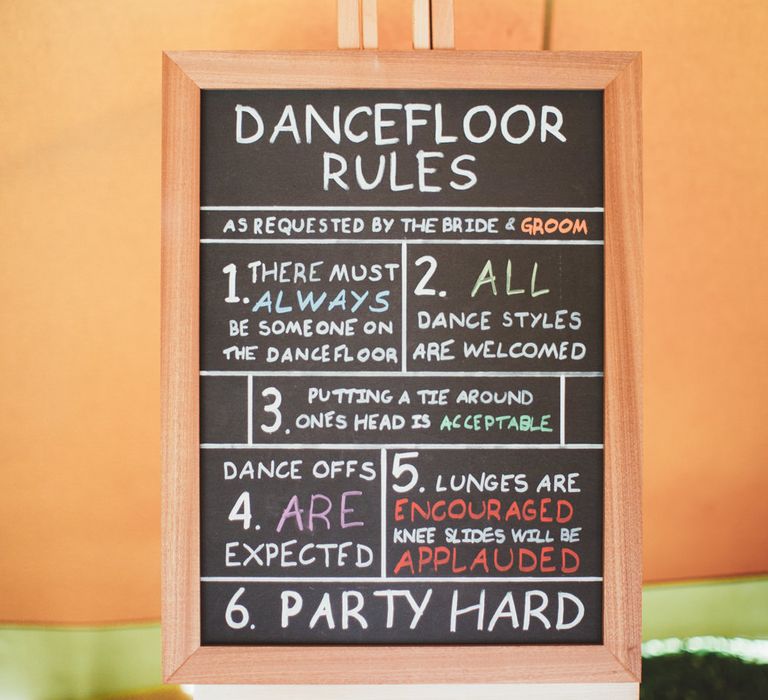 DANCEFLOOR
RULES
AS REQUESTED BY THE BRIDE & GROOM
1. THERE MUST
ALWAYS
BE SOMEONE ON
THE DANCEFLOOR
2. ALL
DANCE STYLES
ARE WELCOMED
3. PUTTING A TIE AROUND
ONES HEAD IS ACCEPTABLE
DANCE OFFS
4. ARE
EXPECTED
5. LUNGES ARE
ENCOURAGED
KNEE SLIDES WILL BE
APPLAUDED
6. PARTY HARD